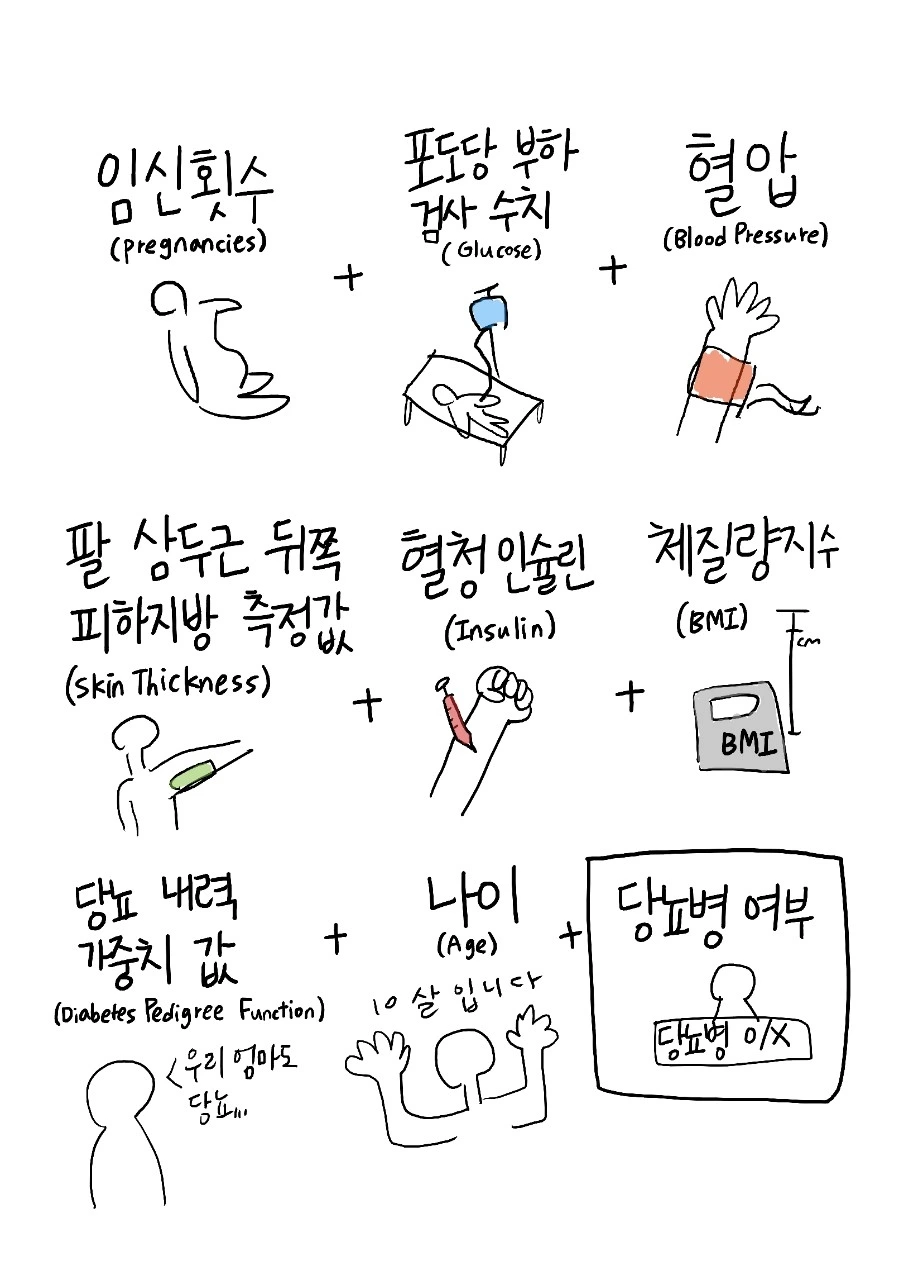 임신횟수
(Pregnancies)
+
포도당 부하
검사 수치
(Glucose)
+
혈압
(Blood Pressure)
팔 삼두근 뒤쪽
피하지방 측정값
(Skin Thickness)
+
혈청 인슐린
(Insulin)
+
체질량지수
(BMI)
cm
BMI
당뇨 내력
가중치 값
(Diabetes Pedigree Function)
<우리 엄마도
당뇨...
+
나이
(Age)
10살입니다
+
당뇨병 여부
당뇨병 O/X